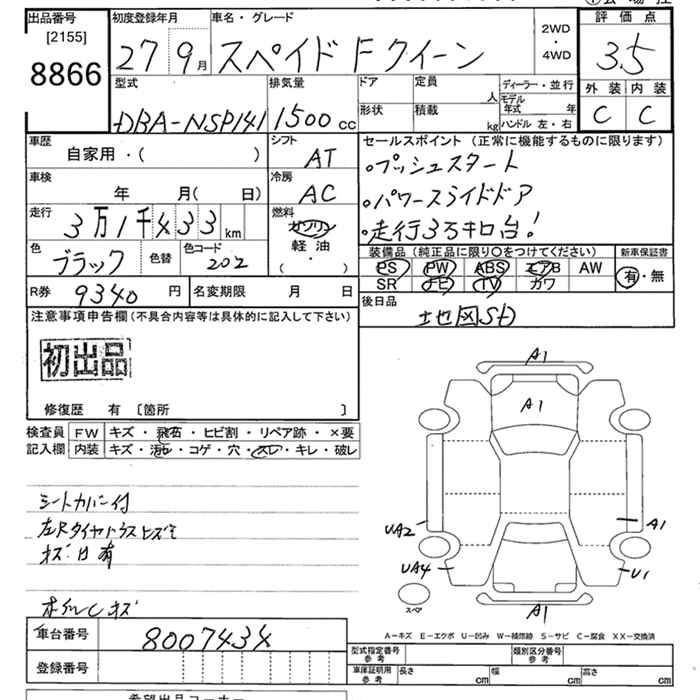 出品番号 [2155] 8866
初度登録年月 27 9月
車名・グレード スペイド Fクイーン
2WD・4WD
評価点 3.5
外装 C 内装 C
型式 DBA-NSP141
排気量 1500cc
ドア 形状
定員 人 積載 kg
ディーラー・並行
モデル年式 年
ハンドル 左・右
車歴 自家用・( )
シフト AT
セールスポイント (正常に機能するものに限ります)
・プッシュスタート
・パワースライドドア
・走行3万キロ台!
車検 年 月( 日)
冷房 AC
走行 3万1千433km
燃料 ガソリン 軽油 ( ・ )
色 ブラック 色替
色コード 202
装備品 (純正品に限り○をつけてください)
PS PW ABS エアB AW
SR ナビ TV カワ
新車保証書 有・無
R券 9340円
名変期限 月 日
後日品 地図SD
注意事項申告欄(不具合内容等は具体的に記入して下さい)
初出品
修復歴 有 [箇所 ]
検査員記入欄
FW キズ・飛石・ヒビ割・リペア跡・×要
内装 キズ・汚レ・コゲ・穴・スレ・キレ・破レ
シートカバー付
キズ・凹有
A1
A1
UA2 A1
UA4 U1
スペア A1
A－キズ E－エクボ U－凹み W－補修跡 S－サビ C－腐食 XX－交換済
車台番号 8007434
登録番号
型式指定番号 参考
類別区分番号 参考
車庫証明用 参考 長さ cm 幅 cm 高さ cm
希望出品コーナー